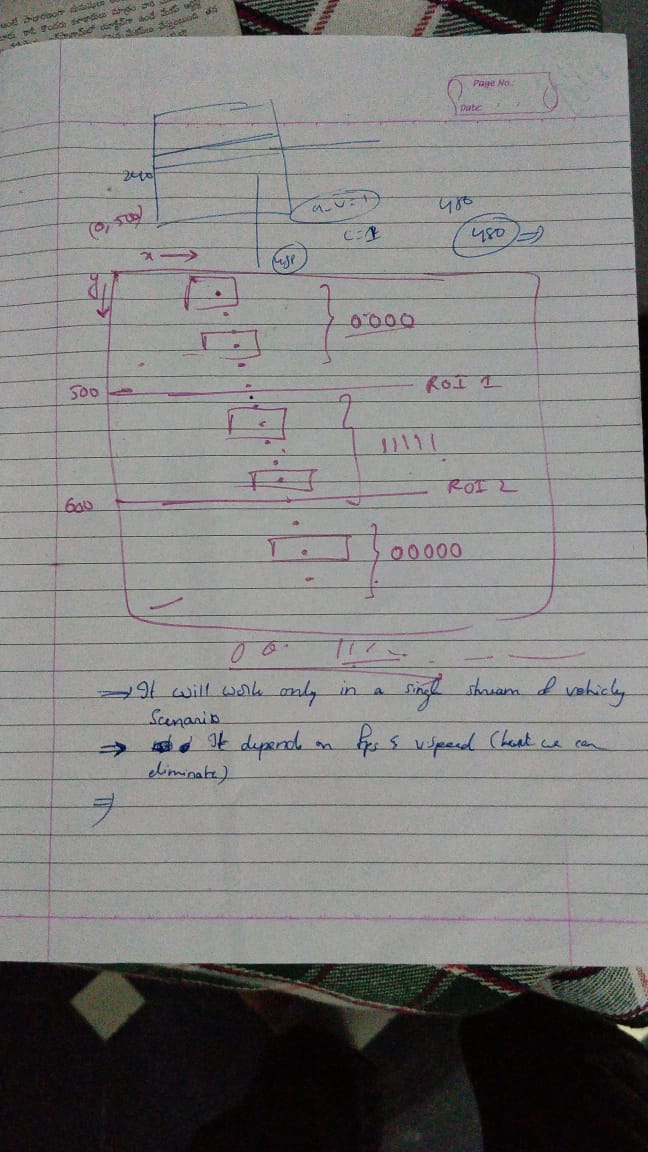 Page No.:
Date:
240
(0, 500)
C=1
480
480 ⇒
x →
y ↓
0000
500
ROI 1
11111
600
ROI 2
00000
0 0
→ It will work only in a single stream of vehicly
Scenario
⇒ It depend on fps & v speed (but we can
eliminate)
⇒